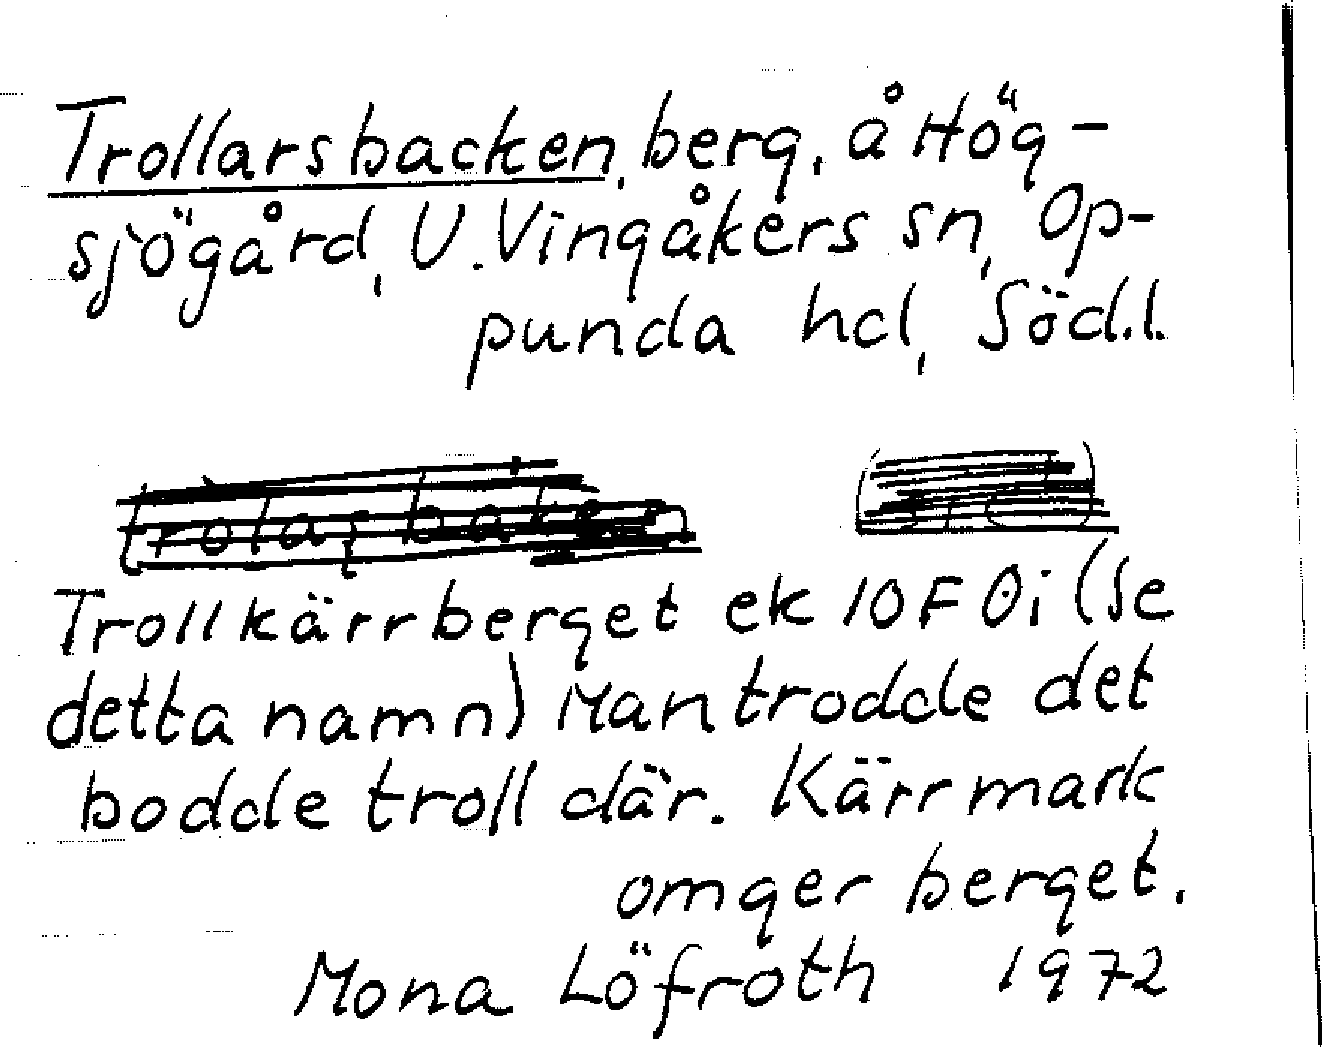 Trollarsbacken, berg, å Hög-
sjögård, V. Vingåkers sn, Op-
punda hd, Söd.l.
Trollkärrberget ek 10F 0i (Se
detta namn) Man trodde det
bodde troll där. Kärrmark
omger berget.
Mona Löfroth 1972